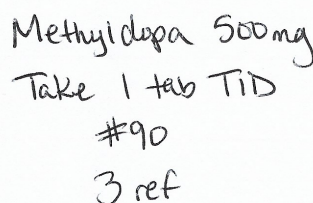 Methyldopa 500mg
Take 1 tab TID
#90
3 ref